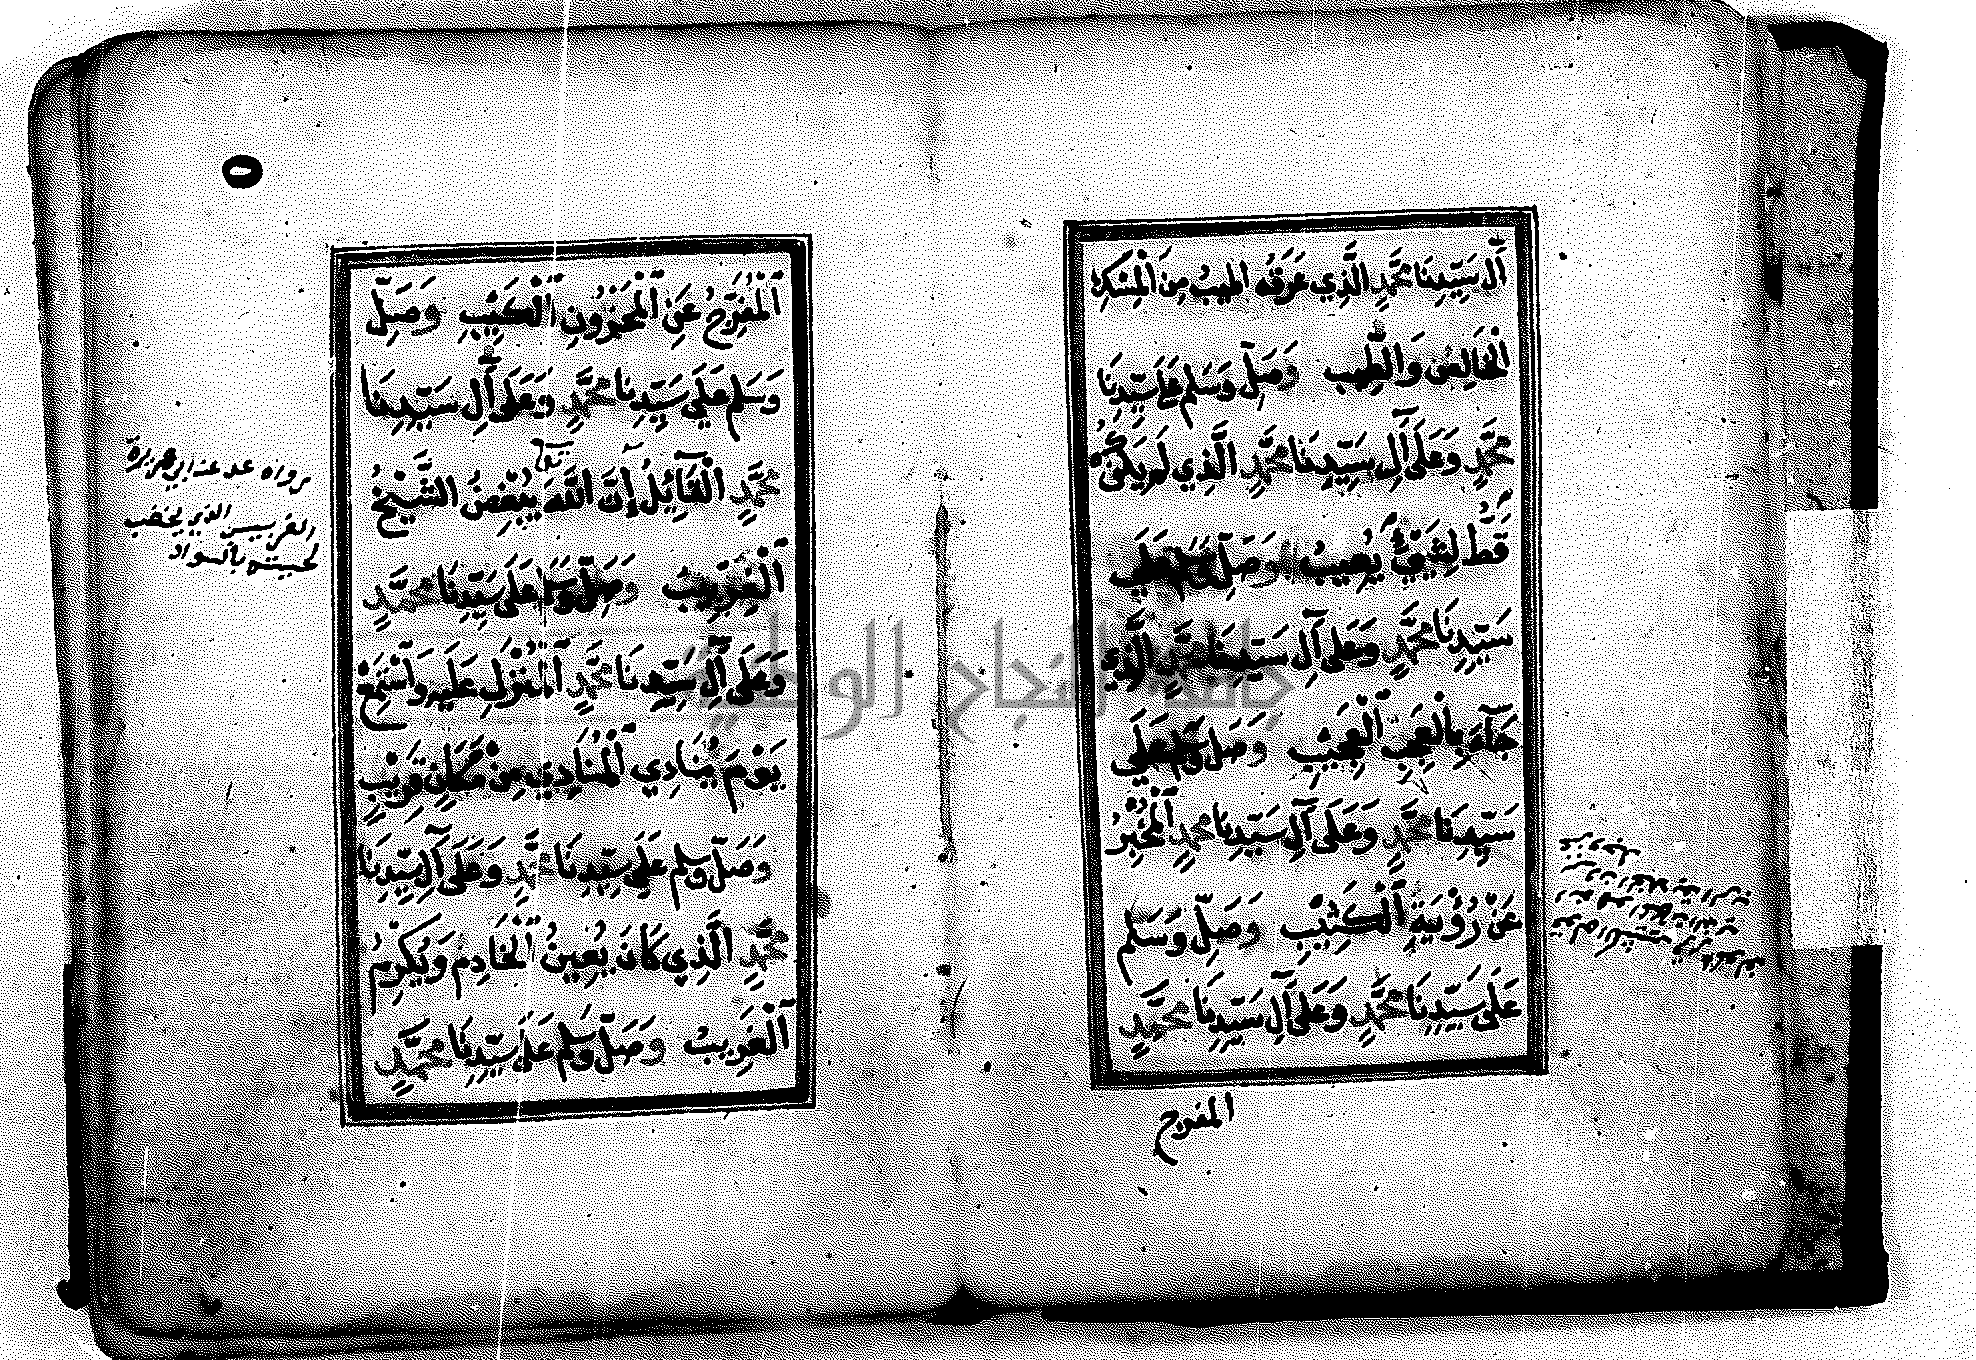 آلِ سَيِّدِنَا مُحَمَّدٍ الَّذِي عَرَقُهُ أَطْيَبُ مِنَ الْمِسْكِ
الْخَالِصِ وَالطِّيبِ وَصَلِّ وَسَلِّمْ عَلَى سَيِّدِنَا
مُحَمَّدٍ وَعَلَى آلِ سَيِّدِنَا مُحَمَّدٍ الَّذِي لَمْ يَكُنْ
قَطُّ لِشَيْءٍ يُعِيبُ وَصَلِّ وَسَلِّمْ عَلَى
سَيِّدِنَا مُحَمَّدٍ وَعَلَى آلِ سَيِّدِنَا مُحَمَّدٍ الَّذِي
جَاءَ بِالْعَجَبِ الْعَجِيبِ وَصَلِّ وَسَلِّمْ عَلَى
سَيِّدِنَا مُحَمَّدٍ وَعَلَى آلِ سَيِّدِنَا مُحَمَّدٍ الْمُخْبِرُ
عَنْ رُؤْيَةِ الْكَثِيبِ وَصَلِّ وَسَلِّمْ
عَلَى سَيِّدِنَا مُحَمَّدٍ وَعَلَى آلِ سَيِّدِنَا مُحَمَّدٍ
المفرج
٥
الْمُفَرِّجُ عَنِ الْمَحْزُونِ الْكَئِيبِ وَصَلِّ
وَسَلِّمْ عَلَى سَيِّدِنَا مُحَمَّدٍ وَعَلَى آلِ سَيِّدِنَا
مُحَمَّدٍ الْقَائِلُ إِنَّ اللَّهَ تعالى يُبْغِضُ الشَّيْخَ
الْغِرْبِيبَ وَصَلِّ وَسَلِّمْ عَلَى سَيِّدِنَا مُحَمَّدٍ
وَعَلَى آلِ سَيِّدِنَا مُحَمَّدٍ الْمُنْزَلِ عَلَيْهِ وَاسْتَمِعْ
يَوْمَ يُنَادِي الْمُنَادِي مِنْ مَكَانٍ قَرِيبٍ
وَصَلِّ وَسَلِّمْ عَلَى سَيِّدِنَا مُحَمَّدٍ وَعَلَى آلِ سَيِّدِنَا
مُحَمَّدٍ الَّذِي كَانَ يُعِينُ الْخَادِمَ وَيُكْرِمُ
الْغَرِيبَ وَصَلِّ وَسَلِّمْ عَلَى سَيِّدِنَا مُحَمَّدٍ
رواه عد عن أبي هريرة
الغربيب الذي يخضب
لحيته بالسواد
جامعة النجاح الوطنية